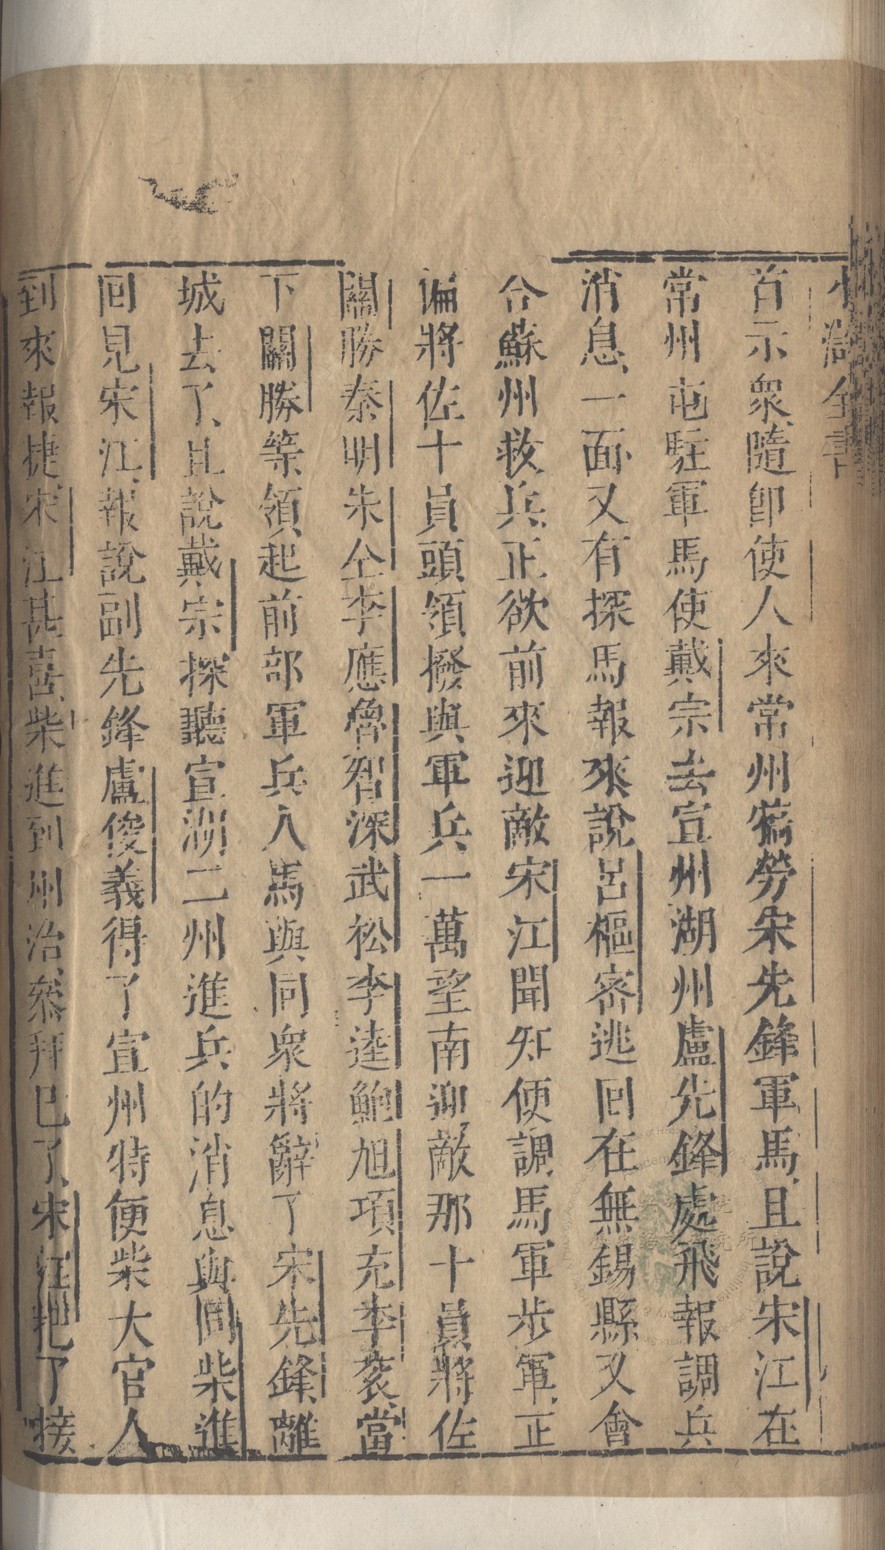 水滸全書
首示衆隨卽使人來常州犒勞宋先鋒軍馬且說宋江在
常州屯駐軍馬使戴宗去宣州湖州盧先鋒處飛報調兵
消息一面又有探馬報來說呂樞密逃回在無錫縣又會
合蘇州救兵正欲前來迎敵宋江聞知便調馬軍步軍正
偏將佐十員頭領撥與軍兵一萬望南迎敵那十員將佐
關勝秦明朱仝李應魯智深武松李逵鮑旭項充李袞當
下關勝等領起前部軍兵人馬與同衆將辭了宋先鋒離
城去了且說戴宗探聽宣湖二州進兵的消息與同柴進
回見宋江報說副先鋒盧俊義得了宣州特使柴大官人
到來報捷宋江甚喜柴進到州治叅拜已了宋江把了接